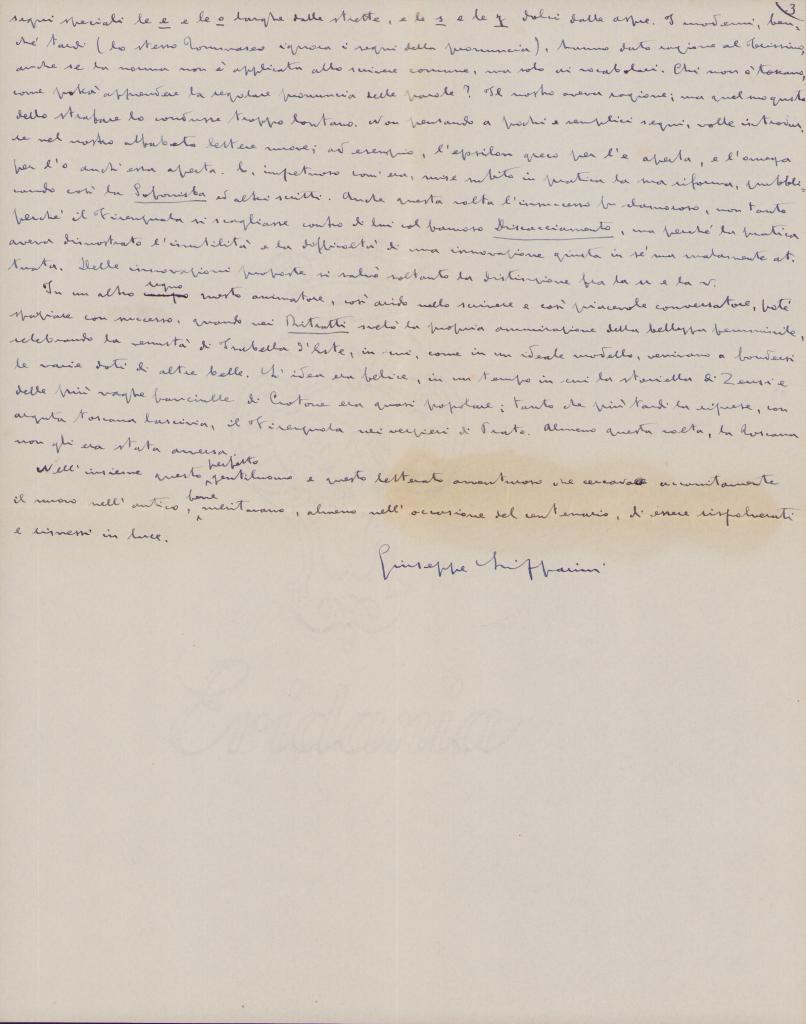 3
segni speciali le e e le o larghe dalle strette, e le s e le z dolci dalle aspre. I moderni, ben-
ché tardi (lo stesso Tommaseo ignora i segni della pronuncia), hanno dato ragione al Trissino,
anche se la norma non è applicata allo scrivere comune, ma solo ai vocabolari. Chi non è toscano,
come potrà apprendere la regolare pronuncia delle parole? Il nostro aveva ragione; ma quel suo gusto
dello strafare lo condusse troppo lontano. Non pensando a pochi e semplici segni, volle introdur-
re nel nostro alfabeto lettere nuove; ad esempio, l'epsilon greco per l'e aperta, e l'omega
per l'o anch'essa aperta. E, impetuoso com'era, mise subito in pratica la sua riforma, pubbli-
cando così la Sofonisba ed altri scritti. Anche questa volta l'insuccesso fu clamoroso, non tanto
perché il Firenzuola si scagliasse contro di lui col famoso Discacciamento, ma perché la pratica
aveva dimostrato l'inutilità e la difficoltà di una innovazione giusta in sé ma malamente at-
tuata. Delle innovazioni proposte si salvò soltanto la distinzione fra la u e la v.
In un altro segno questo animatore, così arido nello scrivere e così piacevole conversatore, poté
spaziare con successo, quando nei Ritratti svelò la propria ammirazione della bellezza femminile,
celebrando la venustà di Isabella d'Este, in cui, come in un ideale modello, venivano a fondersi
le varie doti di altre belle. L'idea era felice, in un tempo in cui la storiella di Zeusi e
delle più vaghe fanciulle di Crotone era quasi popolare; tanto che più tardi la riprese, con
arguta toscana lascivia, il Firenzuola nei verzieri di Prato. Almeno questa volta, la Toscana
non gli era stata avversa.
Nell'insieme questo perfetto gentiluomo e questo letterato avventuroso che cercava accanitamente
il nuovo nell'antico, bene meritavano, almeno nell'occasione del centenario, di essere rispolverati
e rimessi in luce.
Giuseppe Lipparini
Eridania